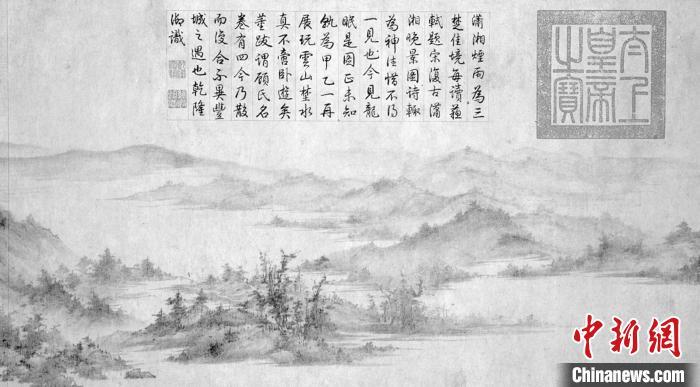 瀟湘煙雨為三
楚佳境每讀蘇
軾題宋復古瀟
湘晚景圖詩輙
為神往惜不得
一見也今見龍
眠是圖正未知
孰為甲乙一再
展玩雲山埜水
真不啻卧遊矣
董跋謂顧氏名
卷有四今乃散
而復合不異豐
城之遇也乾隆
御識
太上
皇帝
之寶
中新网
Chinanews.com